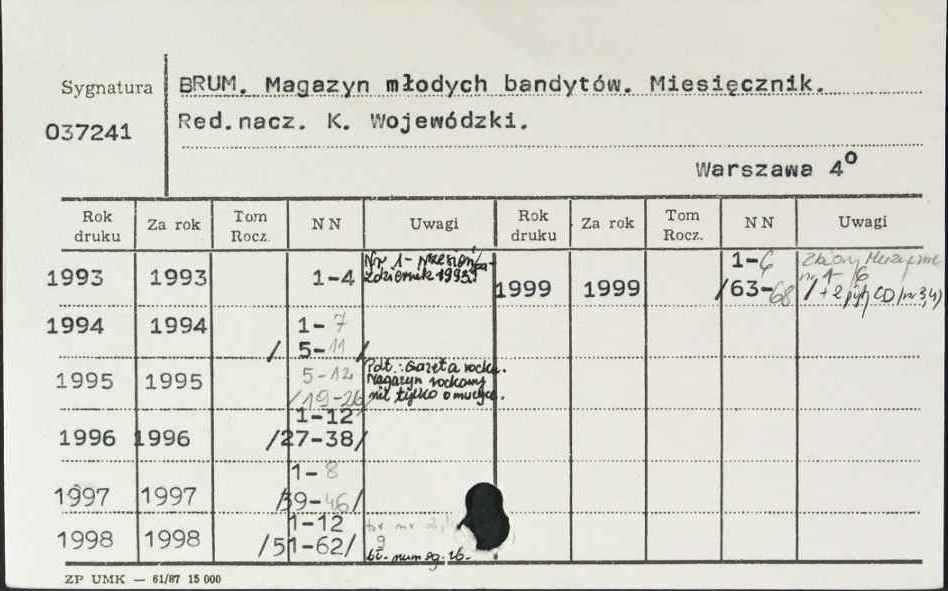 Sygnatura
BRUM. Magazyn młodych bandytów. Miesięcznik.
037241
Red.nacz. K. Wojewódzki.
Warszawa 4º
Rok druku Za rok Tom Rocz. NN Uwagi Rok druku Za rok Tom Rocz. NN Uwagi
1993 1993 1-4 Nr 1-
ździernik 1993!
1999 1999 1-6
/63-68
nr 1- 6
/+2 płyty CD/nr 3,4/
1994 1994 1-7
/ 5-11 /
1995 1995 5-12
/19-26
Pdt.: Gazeta rocka.
Magazyn rockowy
nie tylko o muzyce.
1996 1996 1-12
/27-38/
1997 1997 1-8
/39-46/
1998 1998 1-12
/51-62/
9
ZP UMK — 61/87 15 000